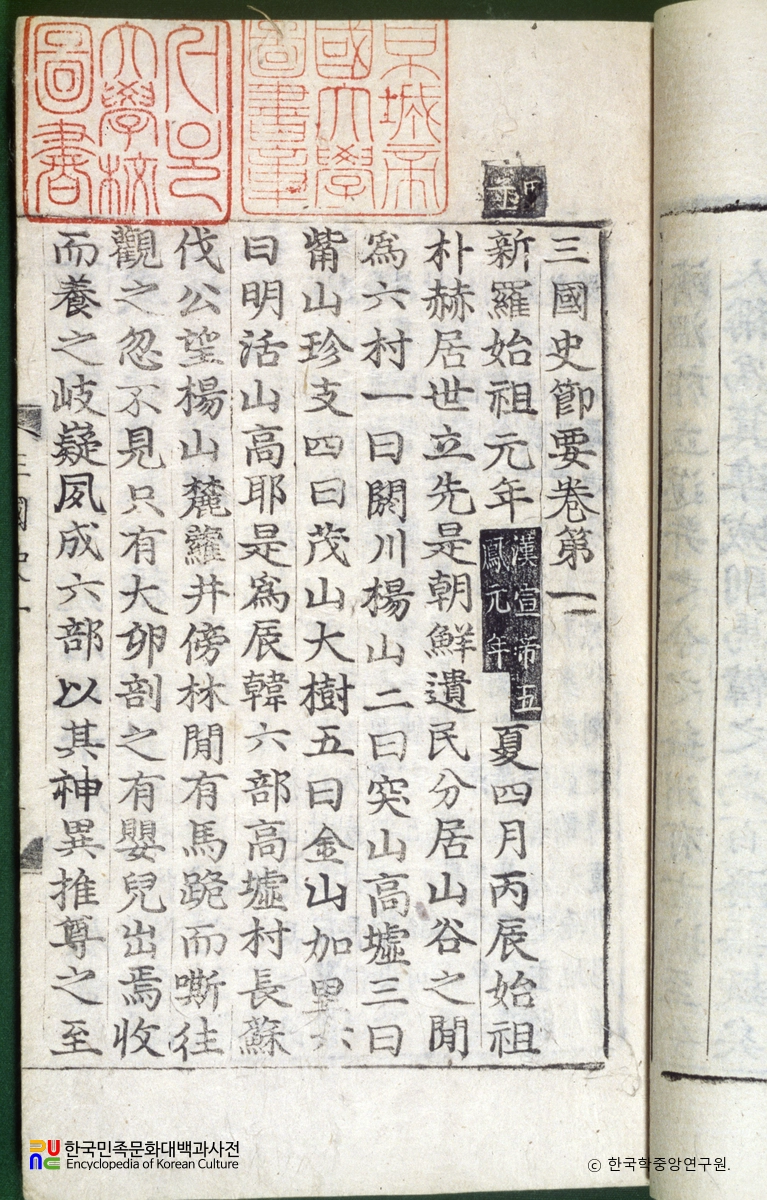 서울
大學校
圖書
京城帝
國大學
圖書章
甲子
三國史節要卷第一
新羅始祖元年漢宣帝五鳳元年夏四月丙辰始祖
朴赫居世立先是朝鮮遺民分居山谷之閒
爲六村一曰閼川楊山二曰突山高墟三曰
觜山珍支四曰茂山大樹五曰金山加里六
曰明活山高耶是爲辰韓六部高墟村長蘇
伐公望楊山麓蘿井傍林閒有馬跪而嘶往
觀之忽不見只有大卵剖之有嬰兒出焉收
而養之岐嶷夙成六部以其神異推尊之至
三國史
한국민족문화대백과사전
Encyclopedia of Korean Culture
© 한국학중앙연구원.